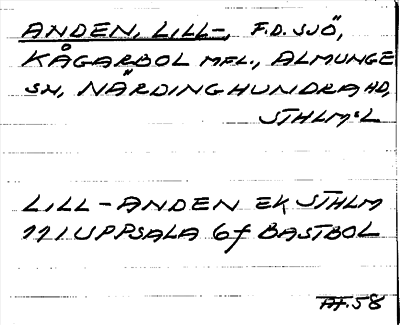 ANDEN, LILL-, F.D. SJÖ,
KÅGARBOL MFL., ALMUNGE
SN, NÄRDINGHUNDRA HD,
STHLMS L
LILL-ANDEN EK STHLM
111 UPPSALA 6f BASTBOL
AF. 58